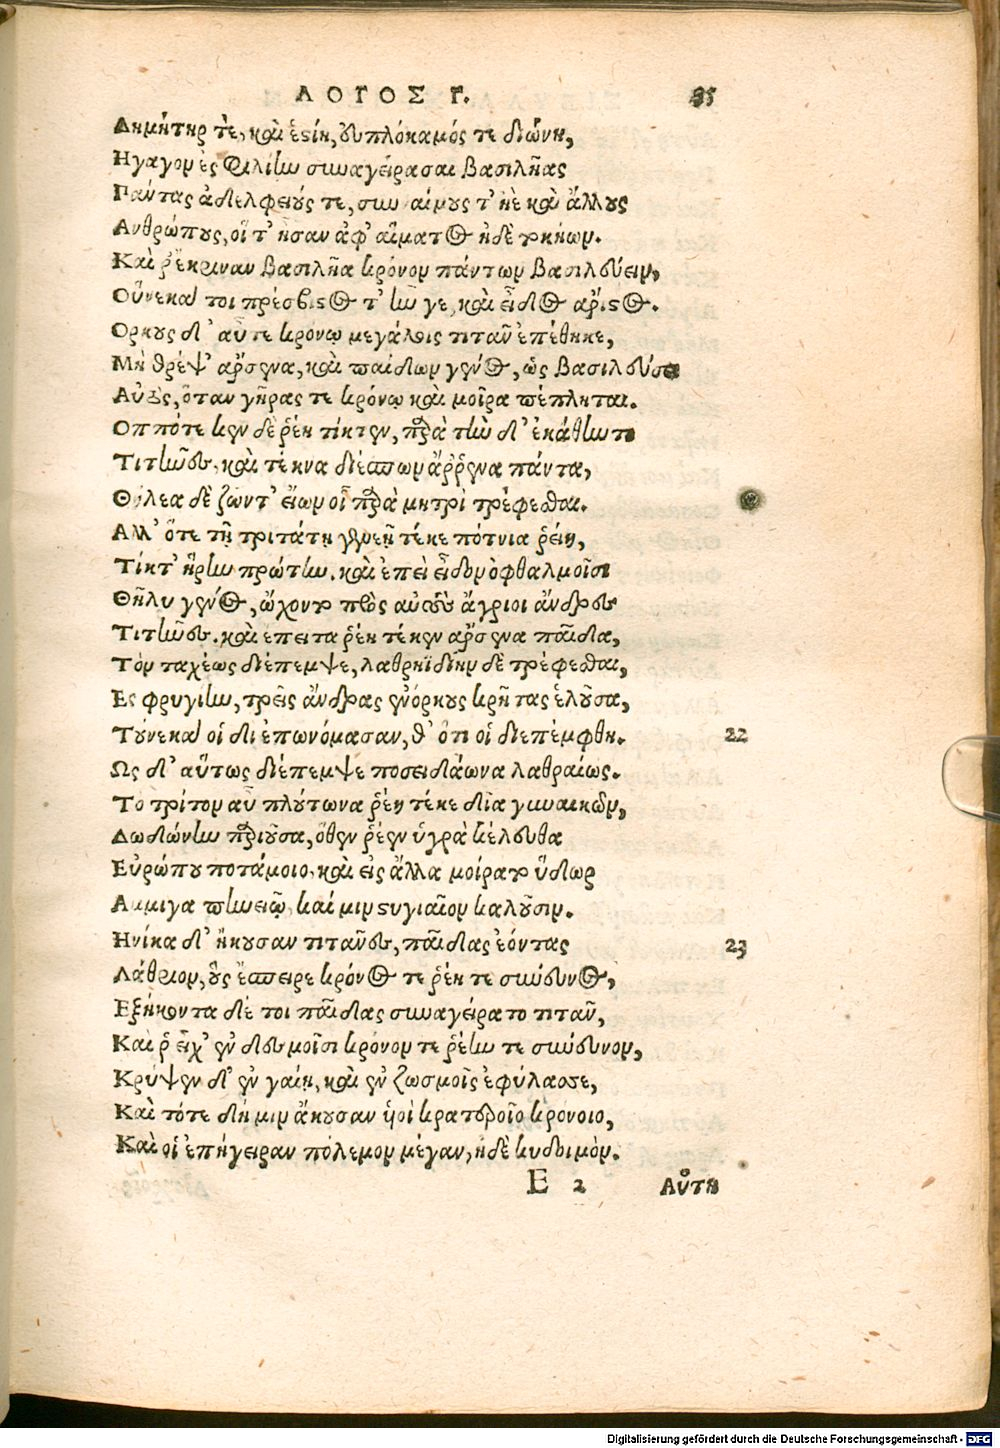 ΛΟΓΟΣ Γ. 35
Δημήτηρ τὲ, καὶ ἑστίη, ἐυπλόκαμός τε διώνη,
Ηγαγον ἐς φιλίην συναγείρασαι βασιλῆας
Πάντας ἀδελφειούς τε, συναίμους τ' ἠὲ καὶ ἄλλους
Ανθρώπους, οἵ τ' ἦσαν ἀφ' αἵματος ἠδὲ τοκήων.
Καὶ ῥ' ἔκριναν βασιλῆα κρόνον πάντων βασιλεύειν,
Οὕνεκά τοι πρέσβιστος τ' ἦν γε, καὶ εἶδος ἄριστος.
Ορκους δ' αὖτε κρόνῳ μεγάλοις τιτὰν ἐπέθηκε,
Μὴ θρέψ' ἄρσενα, καὶ παίδων γένος, ὡς βασιλεύσῃ
Αὐτὸς, ὅταν γῆρας τε κρόνῳ καὶ μοῖρα πέπληται.
Οππότε κεν δὲ ῥέη τίκτεν, παρὰ τὴν δ' ἐκάθηντο
Τιτῆνες, καὶ τέκνα διέσπων ἄῤῥενα πάντα,
Θήλεα δὲ ζῶντ' εἴων οἷ παρὰ μητρὶ τρέφεσθαι.
Αλλ' ὅτε τῇ τριτάτῃ γενεῇ τέκε πότνια ῥείη,
Τίκτ' ἥρην πρώτην. καὶ ἐπεὶ εἶδον ὀφθαλμοῖσι
Θῆλυ γένος, ᾤχοντο πρὸς αὑτοὺς ἄγριοι ἄνδρες
Τιτῆνες. καὶ ἔπειτα ῥέη τέκεν ἄρσενα παῖδα,
Τὸν ταχέως διέπεμψε, λαθρηϊδίην δὲ τρέφεσθαι,
Ες φρυγίην, τρεῖς ἄνδρας ἐνόρκους κρῆτας ἑλοῦσα,
Τούνεκά οἱ δι ἐπωνόμασαν, θ' ὅτι οἱ διεπέμφθη. 22
Ως δ' αὕτως διέπεμψε ποσειδάωνα λαθραίως.
Τὸ τρίτον αὖ πλούτωνα ῥέη τέκε δῖα γυναικῶν,
Δωδώνην παριοῦσα, ὅθεν ῥέεν ὑγρὰ κέλευθα
Εὐρώπου ποτάμοιο, καὶ εἰς ἅλλα μοίρατο ὕδωρ
Αμμιγα πηνειῷ, καί μιν στυγιαῖον καλοῦσιν.
Ηνίκα δ' ἤκουσαν τιτᾶνες, παῖδας ἐόντας 23
Λάθριον, οὓς ἔσπειρε κρόνος τε ῥέη τε σύνευνος,
Εξήκοντα δέ τοι παῖδας συναγείρατο τιτὰν,
Καὶ ῥ' εἶχ' ἐν δεσμοῖσι κρόνον τε ῥέην τε σύνευνον,
Κρύψεν δ' ἐν γαίῃ, καὶ ἐν ζωσμοῖς ἐφύλασσε,
Καὶ τότε δή μιν ἄκουσαν ὑιοὶ κρατεροῖο κρόνοιο,
Καὶ οἱ ἐπήγειραν πόλεμον μέγαν, ἠδὲ κυδοιμὸν.
E 2 Αὕτη
Digitalisierung gefördert durch die Deutsche Forschungsgemeinschaft - DFG